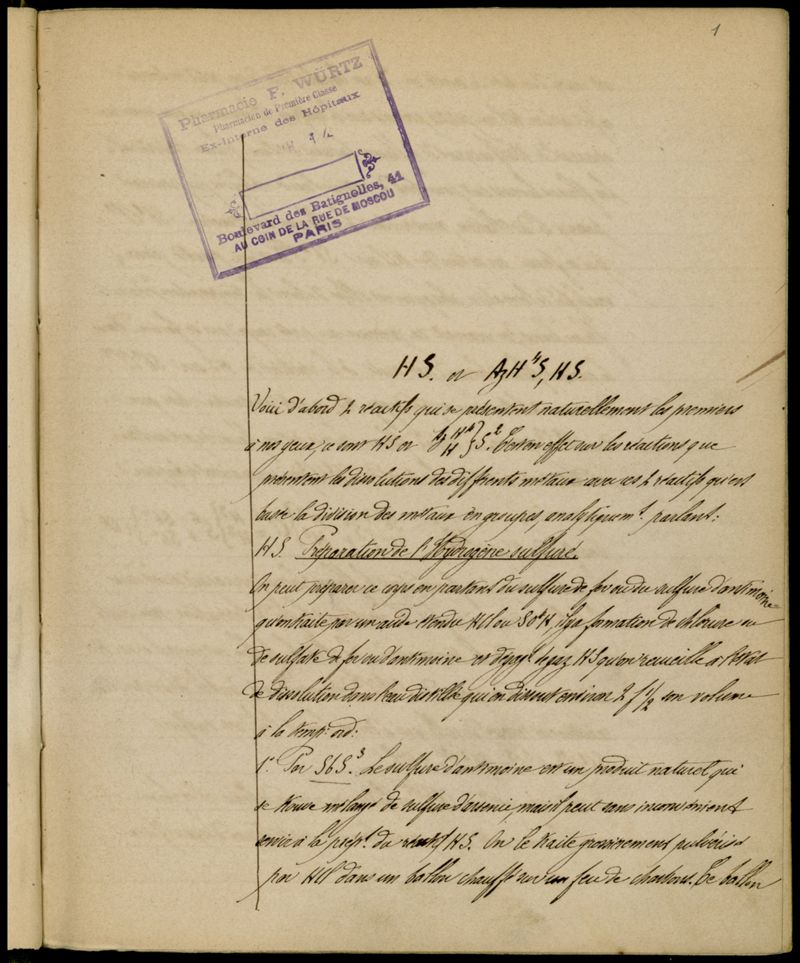 1
Pharmacie F. WÜRTZ
Pharmacien de Première Classe
Ex-Interne des Hôpitaux
Boulevard des Batignolles, 41
AU COIN DE LA RUE DE MOSCOU
PARIS
HS. et AzH⁴S, HS.
Voici d'abord 2 réactifs qui se présentent naturellement les premiers
à nos yeux, ce sont HS et AzH⁴ H } S². C'est en effet sur les réactions que
présentent les dissolutions des différents métaux avec ces 2 réactifs qu'est
basée la division des métaux en groupes, analytiquemt. parlant:
HS. Préparation de l'Hydrogène sulfuré.
On peut préparer ce corps en partant du sulfure de fer ou du sulfure d'antimoine
qu'on traite par un acide étendu HCl ou SO⁴H, il y a formation de chlorure ou
de sulfate de fer ou d'antimoine et dégagt. de gaz HS qu'on recueille à l'état
de dissolution dans l'eau distillée qui en dissout environ 2 f 1/2 son volume
à la temp. ord:
1° Par SbS³. Le sulfure d'antimoine est un produit naturel qui
se trouve mélangé de sulfure d'arsenic, mais peut sans inconvénient
servir à la prépt. du réactif HS. On le traite grossièrement pulvérisé
par HCl dans un ballon chauffé sur un feu de charbons. Ce ballon